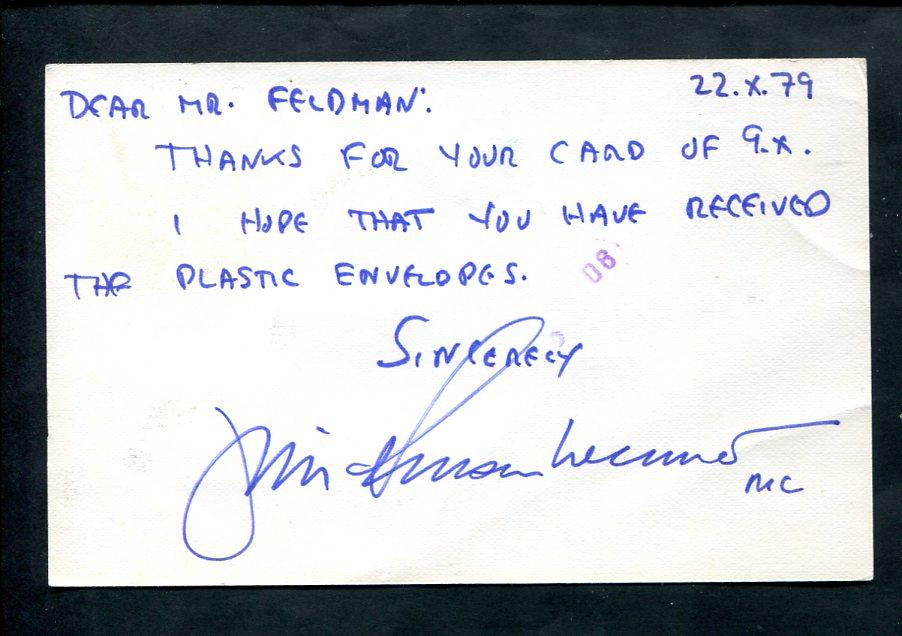 22.X.79
DEAR MR. FELDMAN:
THANKS FOR YOUR CARD OF 9.X.
I HOPE THAT YOU HAVE RECEIVED
THE PLASTIC ENVELOPES.
08
SINCERELY
MC